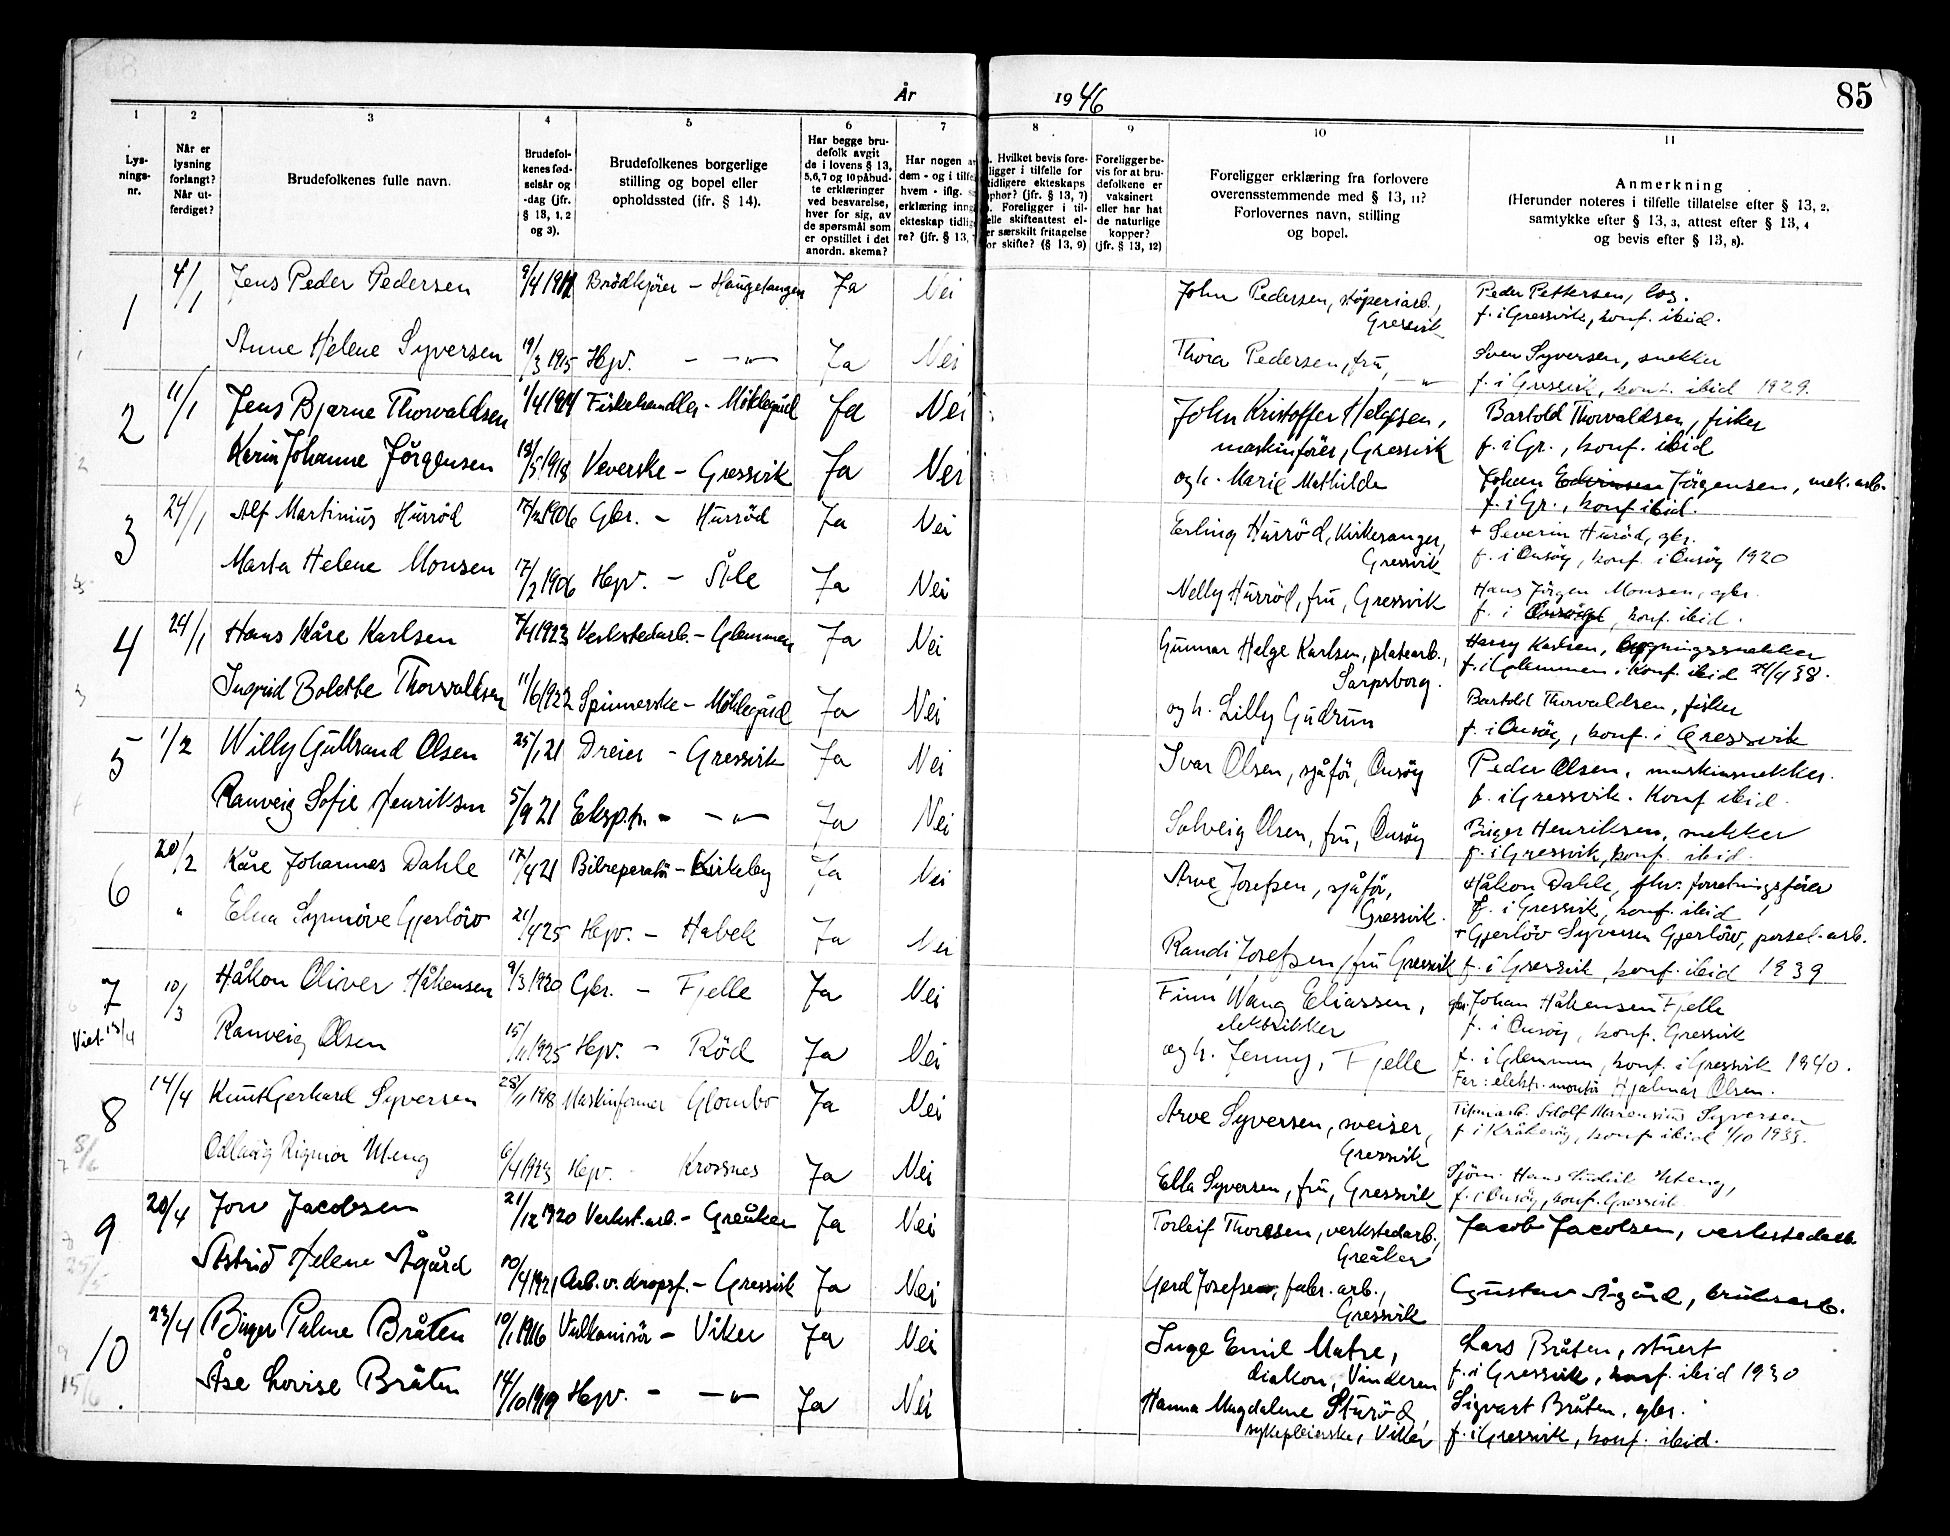 85
År 1946
1 2 3 4 5 6 7 8 9 10 11
Lys-
nings-
nr.
Når er
lysning
forlangt?
Når ut-
ferdiget?
Brudefolkenes fulle navn.
Brudefol-
kenes fød-
selsår og
-dag (jfr.
§ 13, 1, 2
og 3).
Brudefolkenes borgerlige
stilling og bopel eller
opholdssted (ifr. § 14).
Har begge bru-
defolk avgit
de i lovens § 13,
5,6,7 og 10 påbud-
te erklæringer
ved besvarelse,
hver for sig, av
de spørsmål som
er opstillet i det
anordn. skema?
Har nogen av
dem - og i tilfe
hvem - iflg. s
erklæring inng
ekteskap tidlig
re? (jfr. § 13,
Hvilket bevis fore-
ligger i tilfelle for
tidligere ekteskaps
ophør? (jfr. § 13, 7)
Foreligger i til-
elle skifteattest el-
er særskilt fritagelse
or skifte? (§ 13, 9)
Foreligger be-
vis for at bru-
defolkene er
vaksinert
eller har hat
de naturlige
kopper?
(jfr. § 13, 12)
Foreligger erklæring fra forlovere
overensstemmende med § 13, 11?
Forlovernes navn, stilling
og bopel.
Anmerkning
(Herunder noteres i tilfelle tillatelse efter § 13, 2,
samtykke efter § 13, 3, attest efter § 13, 4
og bevis efter § 13, 8).
1 4/1 Jens Peder Pedersen Brödkjörer - Haugetangen Ja Nei John Pedersen, støperiarb., Gressvik Peder Pettersen, log.
f. i Gressvik, konf. ibid.
Anne Helene Syversen 19/3 1915 Hgv. - -"- Ja Nei Thora Pedersen, fru, -"- Sven Syversen, snekker
f. i Gressvik, konf. ibid 1929.
2 11/1 Jens Bjarne Thorvaldsen Fiskehandler - Möklegård Ja Nei John Kristoffer Helgesen, maskinförer, Gressvik Bartold Thorvaldsen, fisker
f. i Gr., konf. ibid
Karin Johanne Jörgensen 18/5 1918 Veverske - Gressvik Ja Nei og h. Marie Mathilde Johan Jörgensen, mek. arb.
f. i Gr., konf ibid.
3 24/1 Alf Martinius Hurröd Gbr. - Hurröd Ja Nei Erling Hurröd, Kirkesanger, Gressvik + Severin Huröd, gbr.
f. i Onsöy, konf. i Onsöy 1920
Marta Helene Monsen 17/2 1906 Hgv. - Åle Ja Nei Nelly Hurröd, fru, Gressvik Hans Jörgen Monsen, gbr.
f. i Onsöy, konf. ibid.
4 24/1 Hans Kåre Karlsen Verkstedarb. - Glemmen Ja Nei Gunnar Helge Karlsen, platearb., Sarpsborg. Harry Karlsen, bygningssnekker
f. i Glemmen, konf. ibid 24/4 38.
Ingrid Bolette Thorvaldsen 11/6 1922 Spinnerske - Möklegård Ja Nei og h. Lilly Gudrun Bartold Thorvaldsen, fisker
f. i Onsöy, konf. i Gressvik
5 1/2 Willy Gulbrand Olsen 25/1 21 Dreier - Gressvik Ja Nei Ivar Olsen, sjåför, Onsöy Peder Olsen, maskinsnekker.
f. i Gressvik. Konf ibid.
Ranveig Sofie Henriksen 5/9 21 Eksp.tr. - -"- Ja Nei Solveig Olsen, fru, Onsöy Birger Henriksen, snekker
f. i Gressvik, konf. ibid.
6 20/2 Kåre Johannes Dahle 17/4 21 Bilreparatör - Kirkeby Ja Nei Arve Josefsen, sjåför, Gressvik. Håkon Dahle, fhv. forretningsförer
f. i Gressvik, konf. ibid
" Elna Synnöve Gjerlöw 21/4 25 Hgv. - Habek Ja Nei Randi Josefsen, fru Gressvik + Gjerlöv Syversen Gjerlöw, porsel. arb.
f. i Gressvik, konf. ibid 1939
7 10/3 Håkon Oliver Håkensen 9/3 1920 Gbr. - Fjelle Ja Nei Finn Wang Eliassen, elektrikker gbr. Johan Håkensen Fjelle
f. i Onsöy, konf. Gressvik
Viet 13/4 Ranveig Olsen 15/11 1925 Hgv. - Röd Ja Nei og h. Jenny, Fjelle f. i Glemmen, konf. i Gressvik 1940.
Far: elektr. montör Hjalmar Olsen.
8 14/4 Knut Gerhard Syversen 28/11 1918 Maskinformer Glombo Ja Nei Arve Syversen, sveiser, Gressvik Adolf Marensius Syversen
f. i Kråkeröy, konf. ibid 1/10 1933.
8/6 Odlaug Rigmor Uteng 6/4 1923 Hgv. Krossnes Ja Nei Ella Syversen, fru, Gressvik Sjöm. Hans Uteng,
f. i Onsöy, konf. Gressvik
9 20/4 Jon Jacobsen 21/12 1920 Verkst. arb. - Greåker Ja Nei Torleif Thoresen, verkstedarb., Greåker Jacob Jacobsen, verkstedarb.
25/5 Astrid Helene Ågård 10/4 1921 Arb. v. - Gressvik Ja Nei Gerd Josefsen, fabr. arb., Gressvik Gustav Ågård, bruksarb.
10 23/4 Birger Palme Bråten 10/1 1916 Vulkanisör - Viker Ja Nei Inge Emil Matre, diakon, Vinderen Lars Bråten, stuert
f. i Gressvik, konf. ibid 1930
15/6 Åse Lovise Bråten 14/10 1919 Hgv. - -"- Ja Nei Hanna Magdalene Sturöd, sykepleierske, Viker Sigvart Bråten, gbr.
f. i Gressvik, konf. ibid.